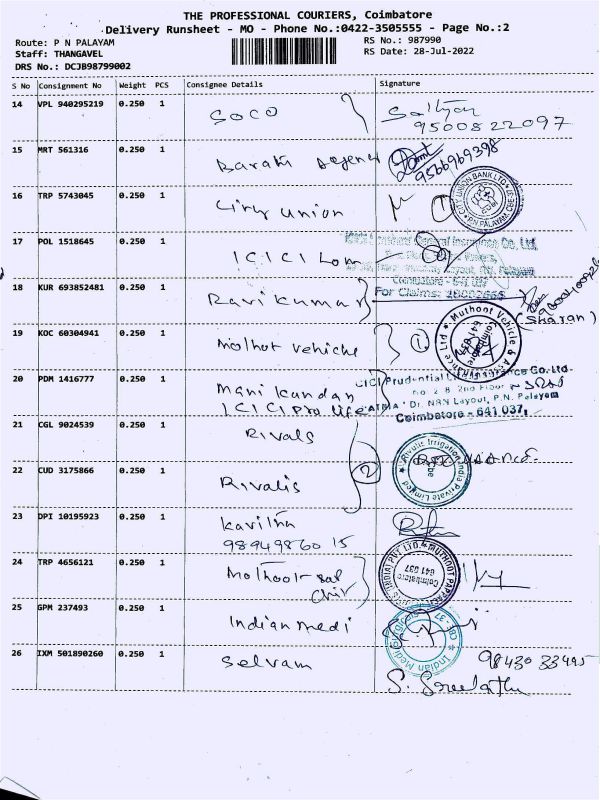 THE PROFESSIONAL COURIERS, Coimbatore
Delivery Runsheet - MO - Phone No.:0422-3505555 - Page No.:2
Route: P N PALAYAM
RS No.: 987990
Staff: THANGAVEL
RS Date: 28-Jul-2022
DRS No.: DCJB98799002
S No Consignment No Weight PCS Consignee Details Signature
14 VPL 940295219 0.250 1 SOCO
9500822097
15 MRT 561316 0.250 1
9566969398
16 TRP 5743045 0.250 1 City union 1
CITY UNION BANK LTD
17 POL 1518645 0.250 1 ICICI Lom
General Insurance Co. Ltd.
For Claims:
18 KUR 693852481 0.250 1 Ravikumar
(Sharan)
19 KOC 60304941 0.250 1 Mothot vehicle 1
Muthoot Vehicle & Ltd
Coimbatore
20 PDM 1416777 0.250 1 Mani kandan
ICICI Pro life
ICICI Prudential Co. Ltd.
Dr. NRN Layout, P.N. Palayam
Coimbatore - 641 037.
21 CGL 9024539 0.250 1 Rivals
22 CUD 3175866 0.250 1 Rivalis 2
Rivulis Irrigation India Private Limited
23 DPI 10195923 0.250 1 Kavitha
9894986015
24 TRP 4656121 0.250 1 Mothoot
Chit
MUTHOOT PAPPACHAN
Coimbatore
641 037
25 GPM 237493 0.250 1 Indian medi
Indian Medi
26 IXM 501890260 0.250 1 Selvam
98430 33495
S. Sreelatha